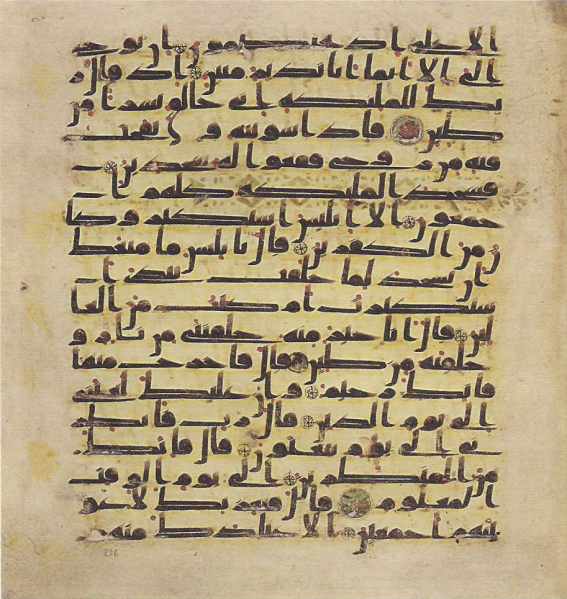 الاعلى اذ يختصمون ان يوحى
الي الا انما انا نذير مبين اذ قال ر
بك للمليكة اني خالق بشرا من
طين فاذا سويته و نفخت
فيه من روحي فقعوا له سجدين
فسجد المليكة كلهم ا
جمعون الا ابليس استكبر وكا
ن من الكفرين قال يابليس ما منعك
ان تسجد لما خلقت بيدي ا
ستكبرت ام كنت من العا
لين قال انا خير منه خلقتني من نار و
خلقته من طين قال فاخرج منها
فانك رجيم وان عليك لعنتي
الى يوم الدين قال رب فانظر
ني الى يوم يبعثون قال فانك
من المنظرين الى يوم الوقت
المعلوم قال فبعزتك لاغو
ينهم اجمعين الا عبادك منهم